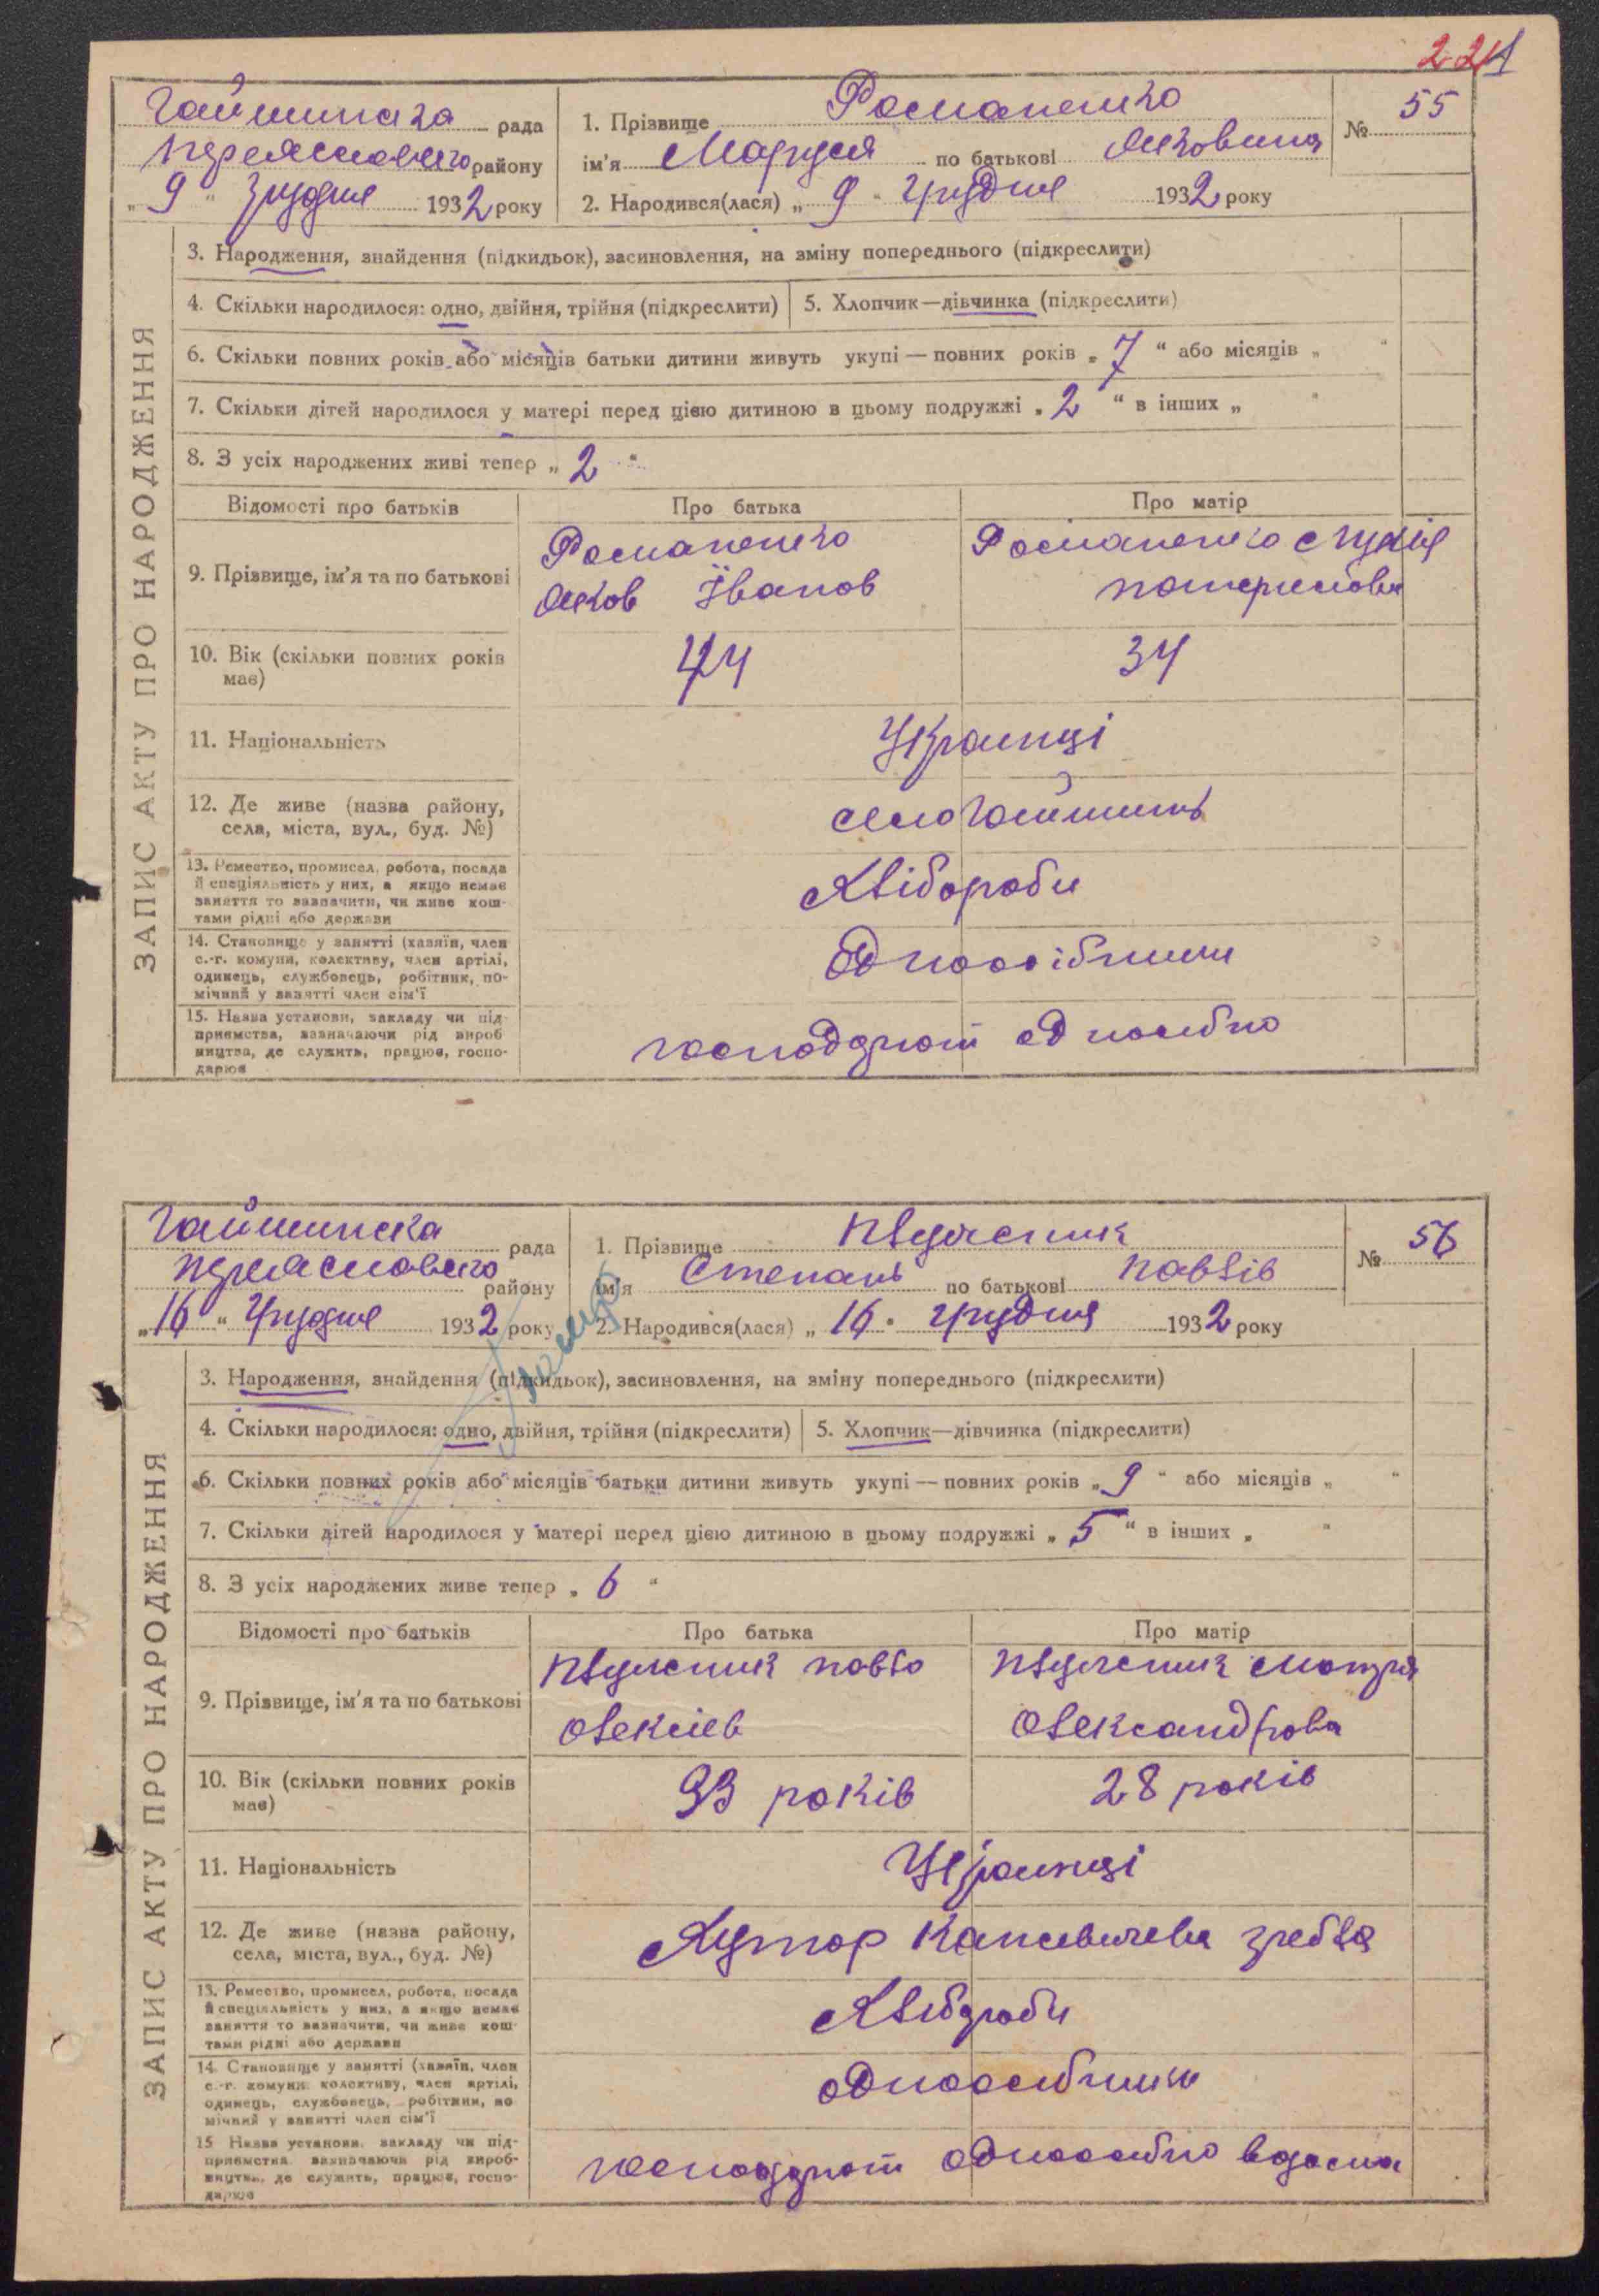 224
Гайшинська рада
Переяславського району
„ 9 " Грудня 1932 року
1. Прізвище Романенко
ім'я Маруся по батькові Яковина
2. Народився(лася) „ 9 " Грудня 1932 року
№ 55
ЗАПИС АКТУ ПРО НАРОДЖЕННЯ
3. Народження, знайдення (підкидьок), засиновлення, на зміну попереднього (підкреслити)
4. Скільки народилося: одно, двійня, трійня (підкреслити) 5. Хлопчик—дівчинка (підкреслити)
6. Скільки повних років або місяців батьки дитини живуть укупі — повних років „ 7 " або місяців „ "
7. Скільки дітей народилося у матері перед цією дитиною в цьому подружжі „ 2 " в інших „ "
8. З усіх народжених живі тепер „ 2 "
Відомості про батьків Про батька Про матір
9. Прізвище, ім'я та по батькові
Романенко
Яков Іванов
Романенко
10. Вік (скільки повних років
має)
44 34
11. Національність
Украинці
12. Де живе (назва району,
села, міста, вул., буд. №)
село Гайшинь
13. Ремество, промисел, робота, посада
й спеціяльність у них, а якщо немає
заняття то зазначити, чи живе кош-
тами рідні або держави
Хлібороби
14. Становище у занятті (хазяїн, член
с.-г. комуни, колективу, член артілі,
одинець, службовець, робітник, по-
мічний у занятті член сім'ї
15. Назва установи, закладу чи під-
приємства, зазначаючи рід вироб
ництва, де служить, працює, госпо-
дарює
Гайшинска рада
Переяславського району
„ 16 " Грудня 1932 року
1. Прізвище
ім'я Степань по батькові Павлів
2. Народився(лася) „ 16 " Грудня 1932 року
№ 56
ЗАПИС АКТУ ПРО НАРОДЖЕННЯ
3. Народження, знайдення (підкидьок), засиновлення, на зміну попереднього (підкреслити)
4. Скільки народилося: одно, двійня, трійня (підкреслити) 5. Хлопчик—дівчинка (підкреслити)
6. Скільки повних років або місяців батьки дитини живуть укупі — повних років „ 9 " або місяців „ "
7. Скільки дітей народилося у матері перед цією дитиною в цьому подружжі „ 5 " в інших „ "
8. З усіх народжених живе тепер „ 6 "
Відомості про батьків Про батька Про матір
9. Прізвище, ім'я та по батькові
Павло
Олексіев
Мотря
Олександрова
10. Вік (скільки повних років
має)
33 років 28 років
11. Національність
Украинці
12. Де живе (назва району,
села, міста, вул., буд. №)
Хутор
13. Ремество, промисел, робота, посада
й спеціяльність у них, а якщо немає
заняття то зазначити, чи живе кош-
тами рідні або держави
Хлібороби
14. Становище у занятті (хазяїн, член
с.-г. комуни колективу, член артілі,
одинець, службовець, робітник, по
мічний у занятті член сім'ї
одноособники
15 Назва установи, закладу чи під-
приємства, зазначаючи рід вироб-
ництва, де служить, працює, госпо-
дарює
одноосибно